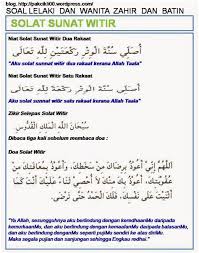 blog. http://pakcik100.wordpress.com/
SOAL LELAKI DAN WANITA ZAHIR DAN BATIN
SOLAT SUNAT WITIR
Niat Solat Sunat Witir Dua Rakaat
أُصَلِّي سُنَّةَ الْوِتْرِ رَكْعَتَيْنِ لِلَّهِ تَعَالَى
"Aku solat sunnat witir dua rakaat kerana Allah Taala"
Niat Solat Sunat Witir Satu Rakaat
أُصَلِّي سُنَّةَ الْوِتْرِ رَكْعَةً لِلَّهِ تَعَالَى
"Aku solat sunnat witir satu rakaat kerana Allah Taala"
Zikir Selepas Solat Witir
سُبْحَانَ الْمَلِكِ الْقُدُّوسِ
Dibaca tiga kali sebelum membaca doa :
Doa Solat Witir
اللَّهُمَّ إِنِّي أَعُوذُ بِرِضَاكَ مِنْ سَخَطِكَ، وَأَعُوذُ بِمُعَافَاتِكَ مِنْ
عُقُوبَتِكَ، وَأَعُوذُ بِكَ مِنْكَ لَا أُحْصِي ثَنَاءً عَلَيْكَ أَنْتَ كَمَا
أَثْنَيْتَ عَلَى نَفْسِكَ، فَلَكَ الْحَمْدُ حَتَّى تَرْضَى.
"Ya Allah, sesungguhnya aku berlindung dengan keredhaanMu daripada
kemurkaanMu, dan aku berlindung dengan kemaafanMu daripada balasanMu, dan
aku berlindung denganMu seperti pujiMu sendiri ke atas diriMu.
Maka segala pujian dan sanjungan sehingga Engkau redha."